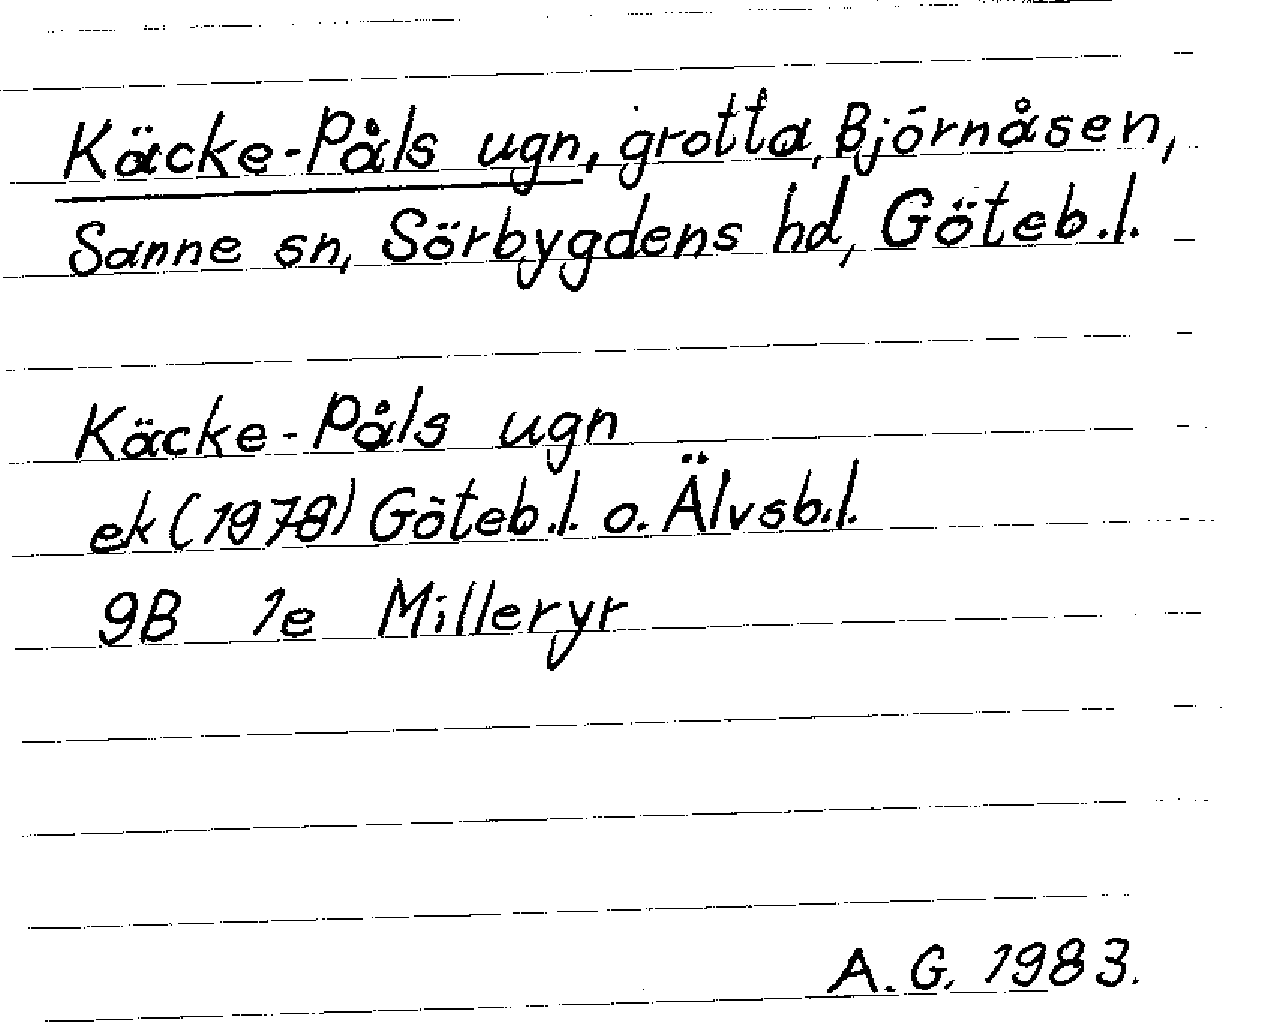 Käcke-Påls ugn, grotta, Björnåsen,
Sanne sn, Sörbygdens hd, Göteb.l.
Käcke-Påls ugn
ek (1978) Göteb.l. o. Älvsb.l.
9B 1e Milleryr
A.G. 1983.